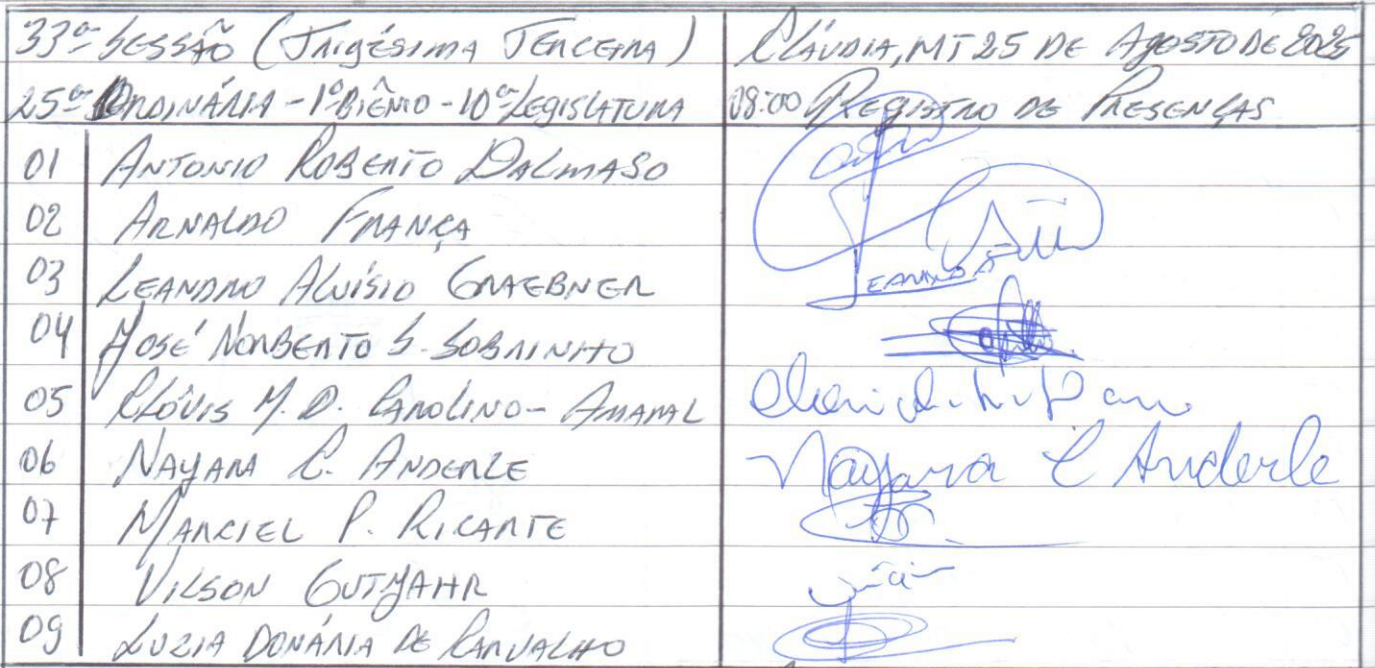 33ª Sessão (Trigésima Terceira)
Cláudia, MT 25 de Agosto de 2025
25ª Ordinária - 1º Biênio - 10ª Legislatura
08:00 Registro de Presenças
01 Antonio Roberto Dalmaso
02 Arnaldo França
03 Leandro Aluísio Graebner
Leandro
04 José Norberto S. Sobrinho
05 Clóvis M. D. Carolino - Amaral
06 Nayara C. Anderle
Nayara C Anderle
07 Marciel P. Ricarte
08 Vilson Gutjahr
09 Luzia Donária de Carvalho